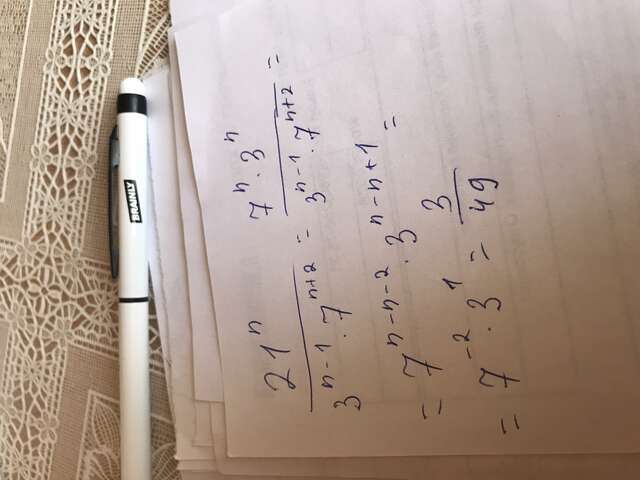 21ⁿ / (3ⁿ⁻¹ · 7ⁿ⁺²) = 7ⁿ · 3ⁿ / (3ⁿ⁻¹ · 7ⁿ⁺²) =
= 7ⁿ⁻ⁿ⁻² · 3ⁿ⁻ⁿ⁺¹ =
= 7⁻² · 3¹ = 3/49
BRAINLY